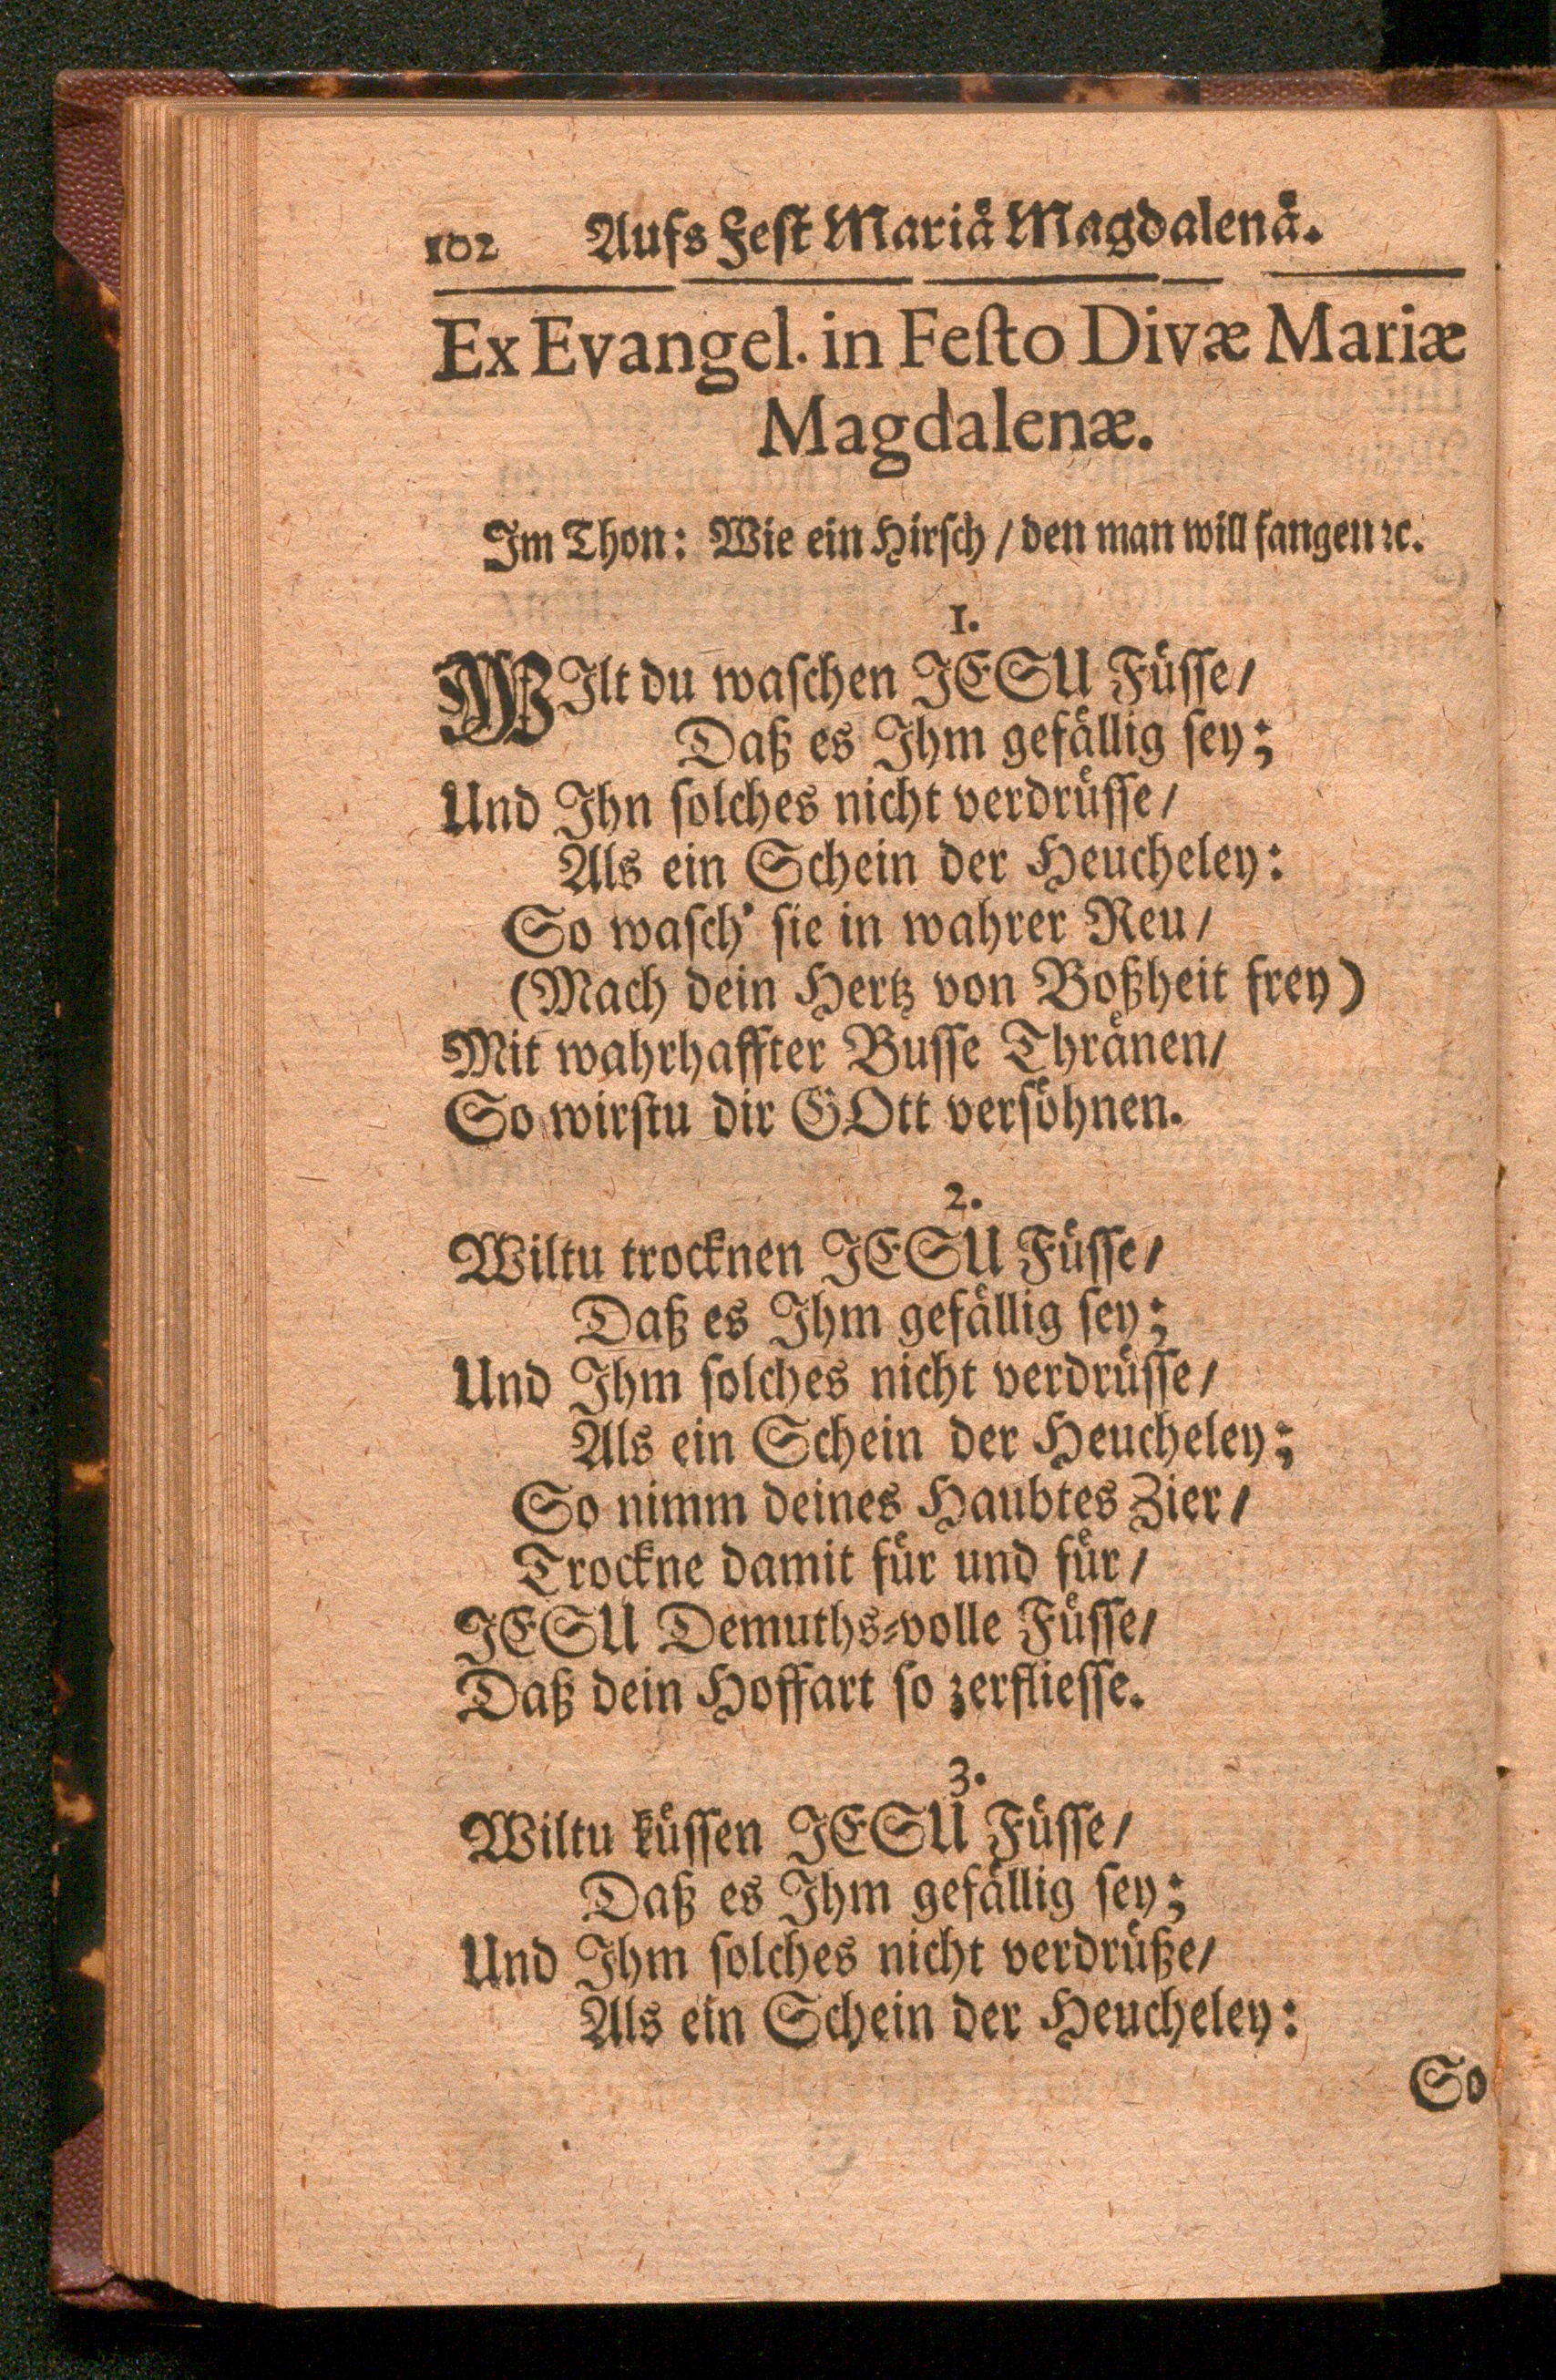 102 Aufs Fest Mariå Magdalenå.
Ex Evangel. in Festo Divæ Mariæ
Magdalenæ.
Im Thon: Wie ein Hirsch / den man will fangen ꝛc.
1.
WIlt du waschen JESU Füsse /
Daß es Ihm gefällig sey;
Und Ihn solches nicht verdrüsse /
Als ein Schein der Heucheley:
So wasch' sie in wahrer Reu /
(Mach dein Hertz von Boßheit frey)
Mit wahrhaffter Busse Thränen /
So wirstu dir GOtt versöhnen.
2.
Wiltu trocknen JESU Füsse /
Daß es Ihm gefällig sey;
Und Ihm solches nicht verdrüsse /
Als ein Schein der Heucheley;
So nimm deines Haubtes Zier /
Trockne damit für und für /
JESU Demuths-volle Füsse /
Daß dein Hoffart so zerfliesse.
3.
Wiltu küssen JESU Füsse /
Daß es Ihm gefällig sey;
Und Ihm solches nicht verdrüße /
Als ein Schein der Heucheley:
So